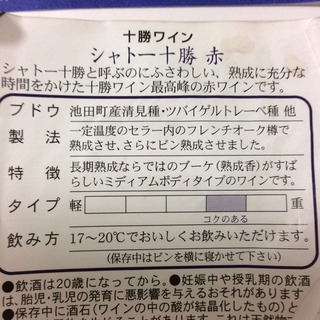 十勝ワイン
シャトー十勝 赤
シャトー十勝と呼ぶのにふさわしい、熟成に充分な
時間をかけた十勝ワイン最高峰の赤ワインです。
ブドウ 池田町産清見種・ツバイゲルトレーベ種 他
製法 一定温度のセラー内のフレンチオーク樽で
熟成させ、さらにビン熟成させました。
特徴 長期熟成ならではのブーケ(熟成香)がすば
らしいミディアムボディタイプのワインです。
タイプ 軽 重
コクのある
飲み方 17〜20℃でおいしくお飲みいただけます。
(保存中はビンを横に寝かせて下さい)
●飲酒は20歳になってから。●妊娠中や授乳期の飲酒
は、胎児・乳児の発育に悪影響を与えるおそれがあります
●保存中に酒石(ワインの中の酸が結晶化したもの)と